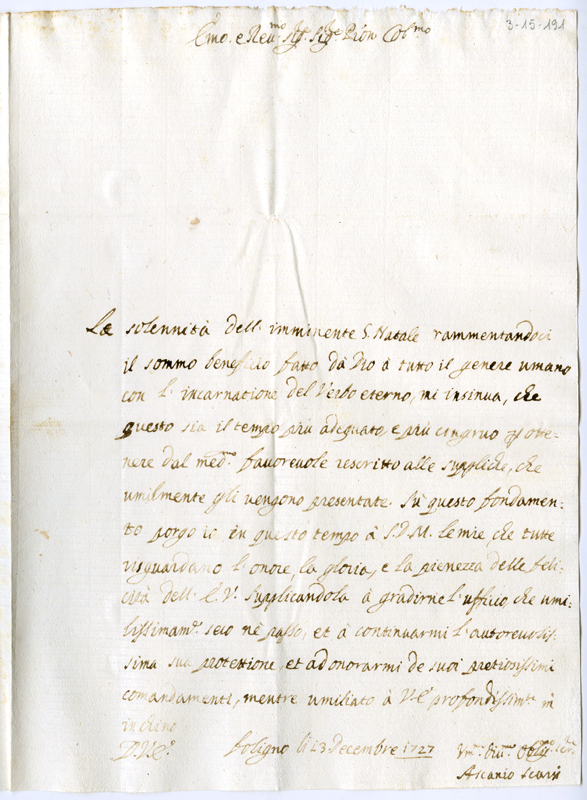 3-15-191
Emo. e Reu.mo Sig.r Sig.r Pron Col.mo
La solennità dell' imminente S. Natale rammentandoci
il sommo beneficio fatto dà Dio à tutto il genere umano
con l' incarnatione del Verbo eterno, mi insinua, che
questo sia il tempo più adequato, e più congruo p otte-
nere dal med.o favorevole rescritto alle suppliche, che
umilmente gli vengono presentate. Sù questo fondamen-
to porgo io in questo tempo à S. D. M. le mie che tutte
risguardano l' onore, la gloria, e la pienezza delle feli-
cità dell' E. V. supplicandola à gradirne l' ufficio, che umi-
lissimam.e seco nè passo, et à continuarmi l' autorevolis-
sima sua protettione, et ad onorarmi de suoi pretiosissimi
comandamenti, mentre umiliato à V. E. profondissim.e m'
inchino
D. V. E.
Foligno li 23 Decembre 1727
Vm.o Diu.mo Obl.mo
Ascanio